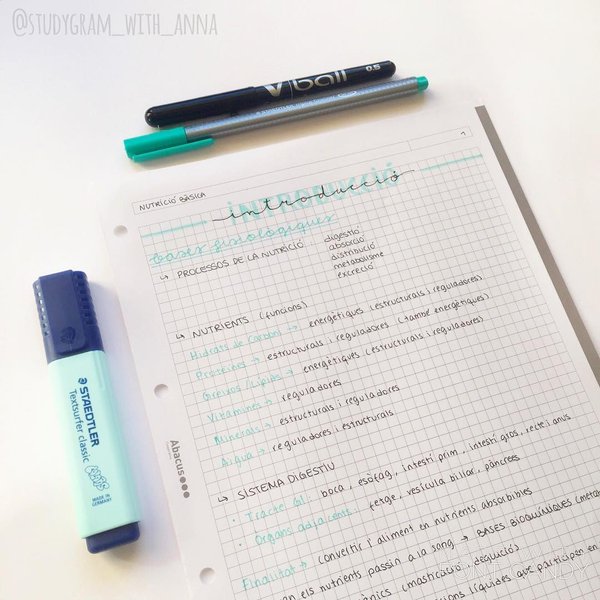 @STUDYGRAM_WITH_ANNA
V ball 0.5
NUTRICIÓ BÀSICA
1
INTRODUCCIÓ
introducció
Bases fisiològiques
↳ PROCESSOS DE LA NUTRICIÓ: digestió
absorció
distribució
metabolisme
excreció
↳ NUTRIENTS (funcions)
Hidrats de Carboni → energètiques (estructurals i reguladores)
Proteïnes → estructurals i reguladores (també energètiques)
Greixos/Lípids → energètiques (estructurals i reguladores)
Vitamines → reguladores
Minerals → estructurals i reguladores
Aigua → reguladores i estructurals
↳ SISTEMA DIGESTIU
· Tracte GI: boca, esòfag, intestí prim, intestí gros, recte i anus
· Òrgans adjacents: fetge, vesícula biliar, pàncrees
Finalitat → convertir l'aliment en nutrients absorbibles
en els nutrients passin a la sang → BASES BIOQUÍMIQUES (meta
ànics (masticació, deglució)
cions líquides que participen en
Abacus
STAEDTLER
Textsurfer classic
MADE IN
GERMANY